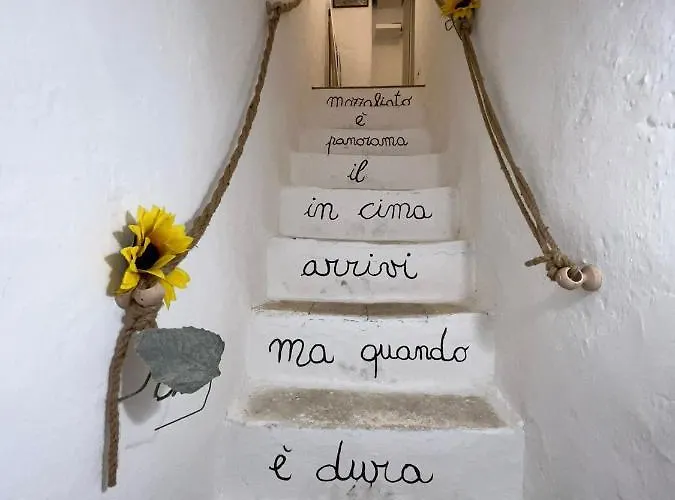 è dura
ma quando
arrivi
in cima
il
panorama
è
mozzafiato